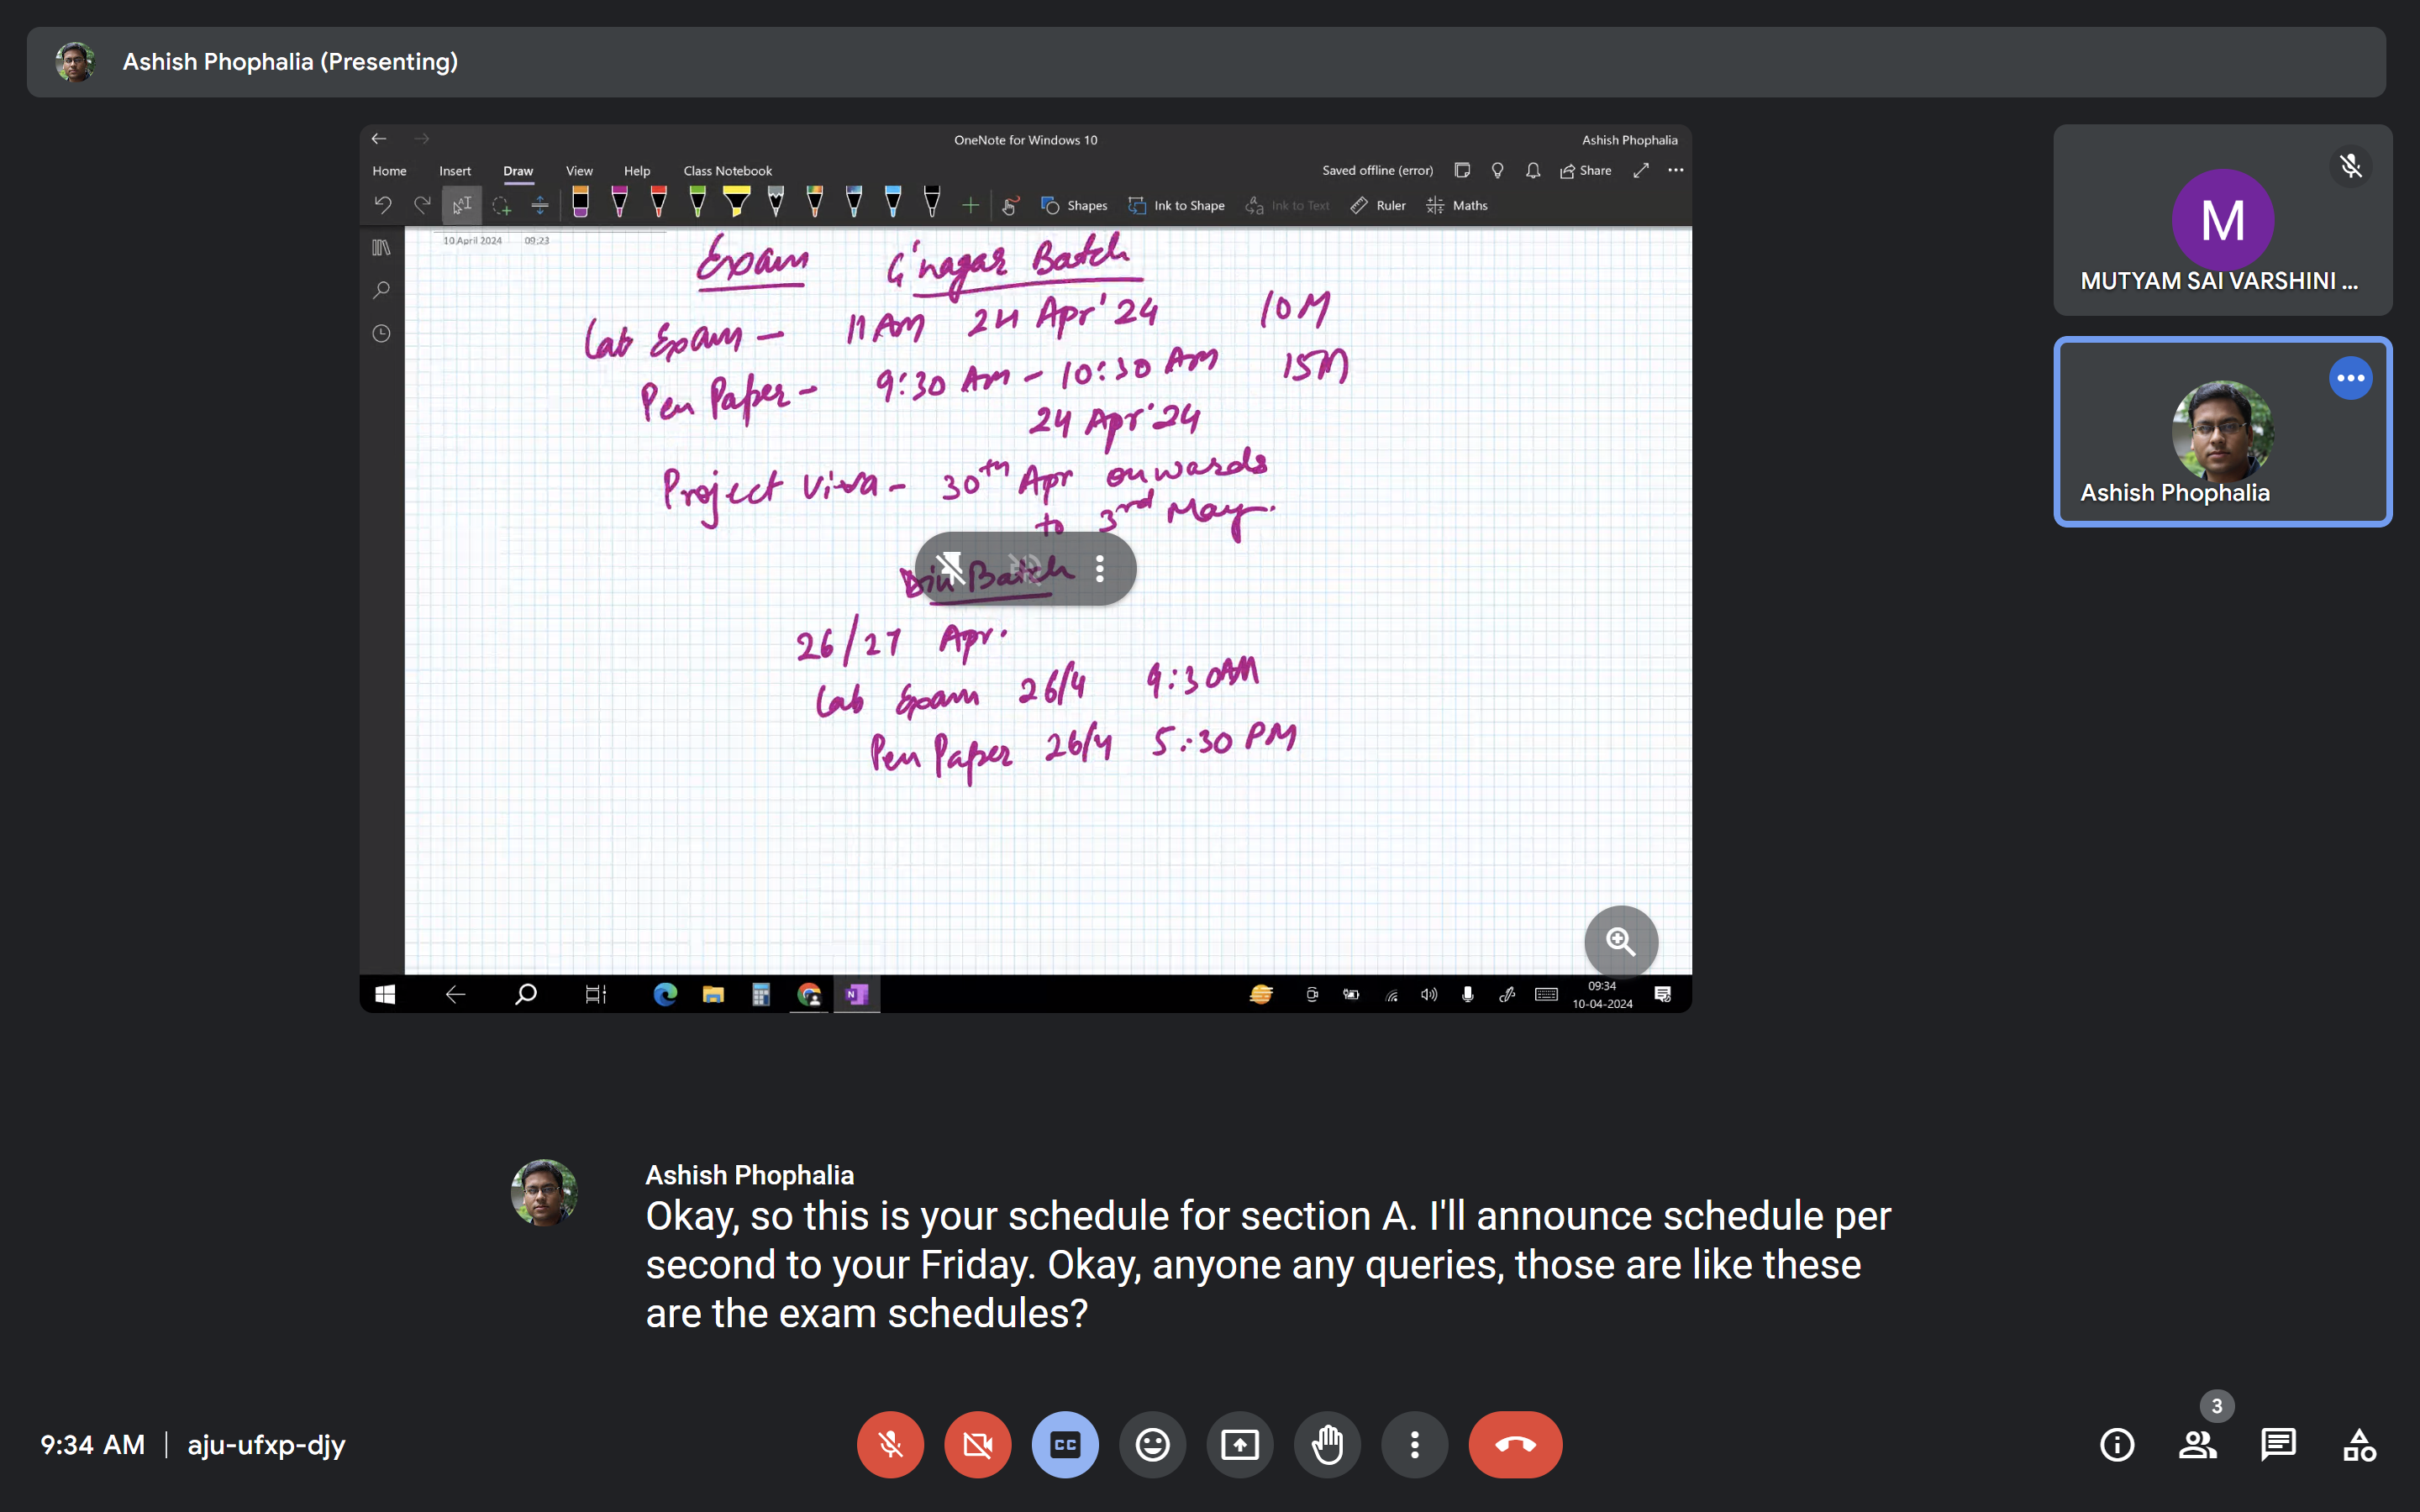 Ashish Phophalia (Presenting)
OneNote for Windows 10
Ashish Phophalia
Home Insert Draw View Help Class Notebook
Saved offline (error) Share
Shapes Ink to Shape Ink to Text Ruler Maths
10 April 2024 09:23
Exam G'nagar Batch
Lab Exam - 11 AM 24 Apr'24 10M
Pen Paper - 9:30 AM - 10:30 AM 15M
24 Apr'24
Project Viva - 30th Apr onwards
to 3rd May.
Diu Batch
26/27 Apr.
Lab Exam 26/4 9:30AM
Pen Paper 26/4 5:30 PM
09:34
10-04-2024
M
MUTYAM SAI VARSHINI ...
Ashish Phophalia
Ashish Phophalia
Okay, so this is your schedule for section A. I'll announce schedule per
second to your Friday. Okay, anyone any queries, those are like these
are the exam schedules?
9:34 AM | aju-ufxp-djy
CC
3